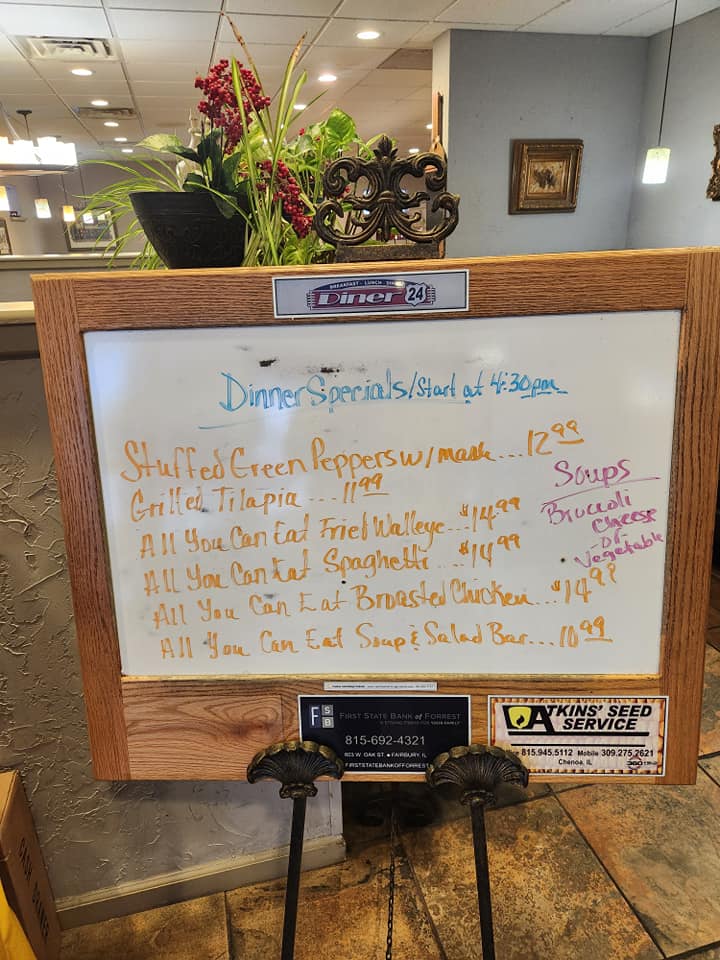 BREAKFAST - LUNCH - DINNER
Diner 24
Dinner Specials/Start at 4:30pm
Stuffed Green Peppers w/mask...12 99
Grilled Tilapia ....11 99
All You Can Eat Fried Walleye...$14 99
All You Can Eat Spaghetti....$14 99
All You Can Eat Broasted Chicken...$14 99
All You Can Eat Soup & Salad Bar...10 99
Soups
Broccoli
Cheese
-or-
Vegetable
FSB
FIRST STATE BANK of FORREST
815-692-4321
803 W. OAK ST. • FAIRBURY, IL
FIRSTSTATEBANKOFFORREST
ATKINS' SEED
SERVICE
815.945.5112 Mobile 309.275.2621
Chenoa, IL